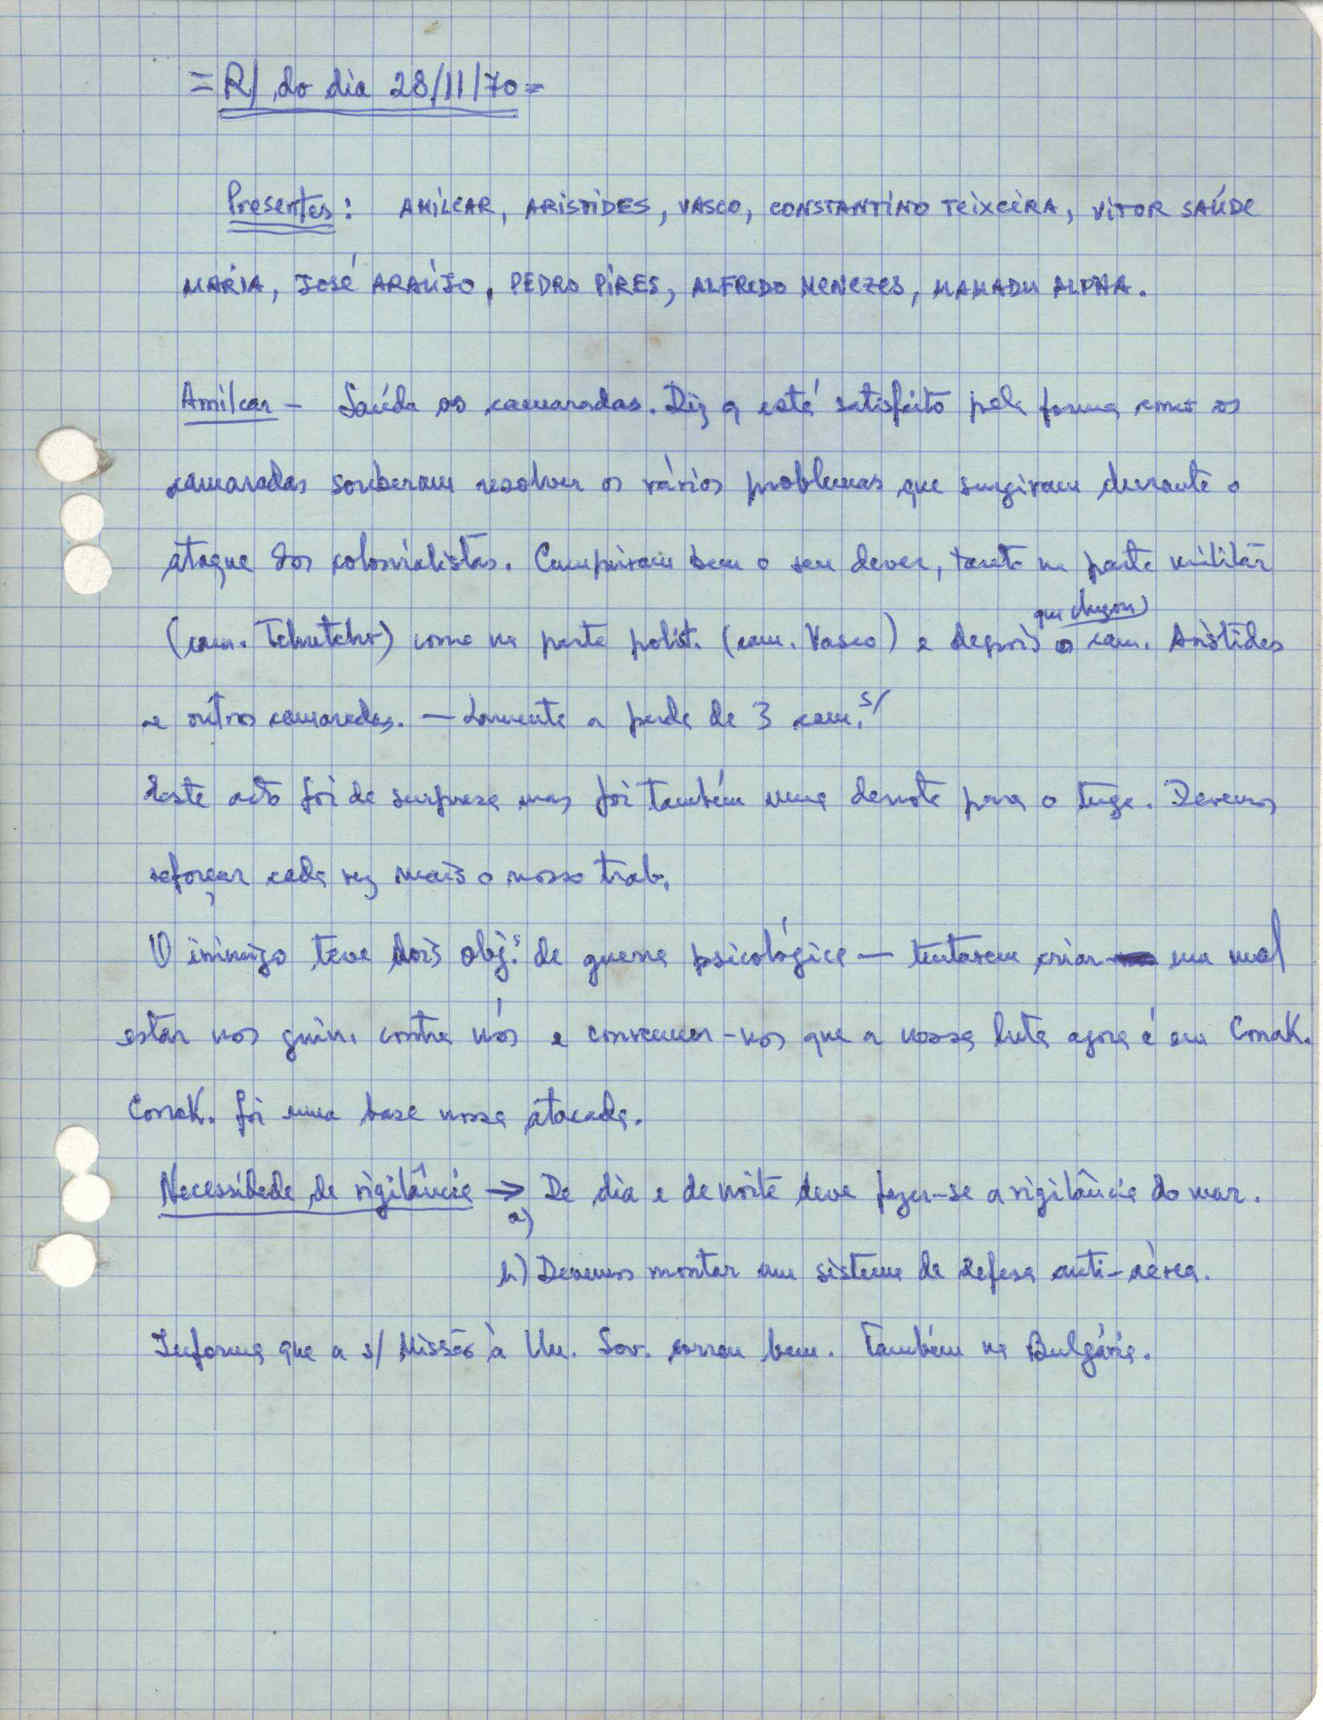 = R/ do dia 28/11/70 =
Presentes: AMÍLCAR, ARISTIDES, VASCO, CONSTANTINO TEIXEIRA, VITOR SAÚDE
MARIA, JOSÉ ARAÚJO, PEDRO PIRES, ALFREDO MENEZES, MAMADU ALPHA.
Amílcar - Saúda os camaradas. Diz q está satisfeito pela forma como os
camaradas souberam resolver os vários problemas que surgiram durante o
ataque dos colonialistas. Cumpriram bem o seu dever, tanto na parte militar
que chegou
(cam. Tchutchu) como na parte polít. (cam. Vasco) e depois o cam. Aristides
e outros camaradas. — Lamenta a perda de 3 cam.s/
Este acto foi de surpresa mas foi também uma derrota para o tuga. Devemos
reforçar cada vez mais o nosso trab.
O inimigo teve dois obj.s de guerra psicológica — tentarem criar um mal
estar nos guin. contra nós e convencer-nos que a nossa luta agora é em Conak.
Conak. foi uma base nossa atacada.
Necessidade de vigilância → De dia e de noite deve fazer-se a vigilância do mar.
a)
b) Devemos montar um sistema de defesa anti-aérea.
Informa que a s/ Missão à Un. Sov. correu bem. Também na Bulgária.